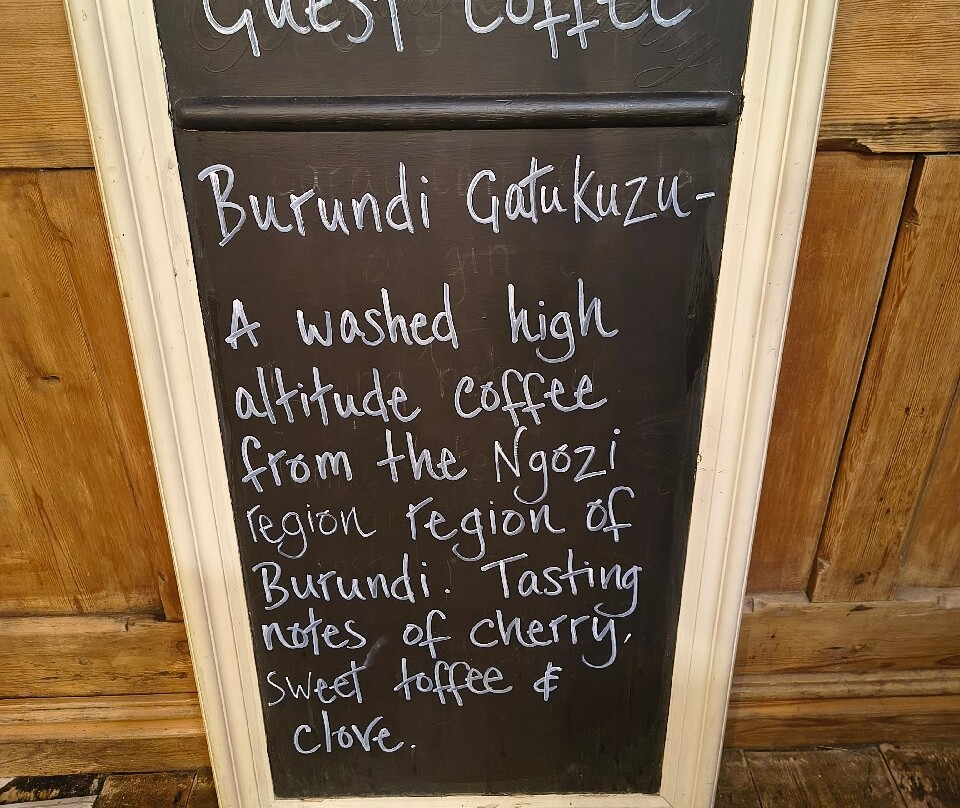 Guest Coffee
Burundi Gatukuzu-
A washed high
altitude coffee
from the Ngozi
region region of
Burundi. Tasting
notes of cherry,
sweet toffee &
clove.